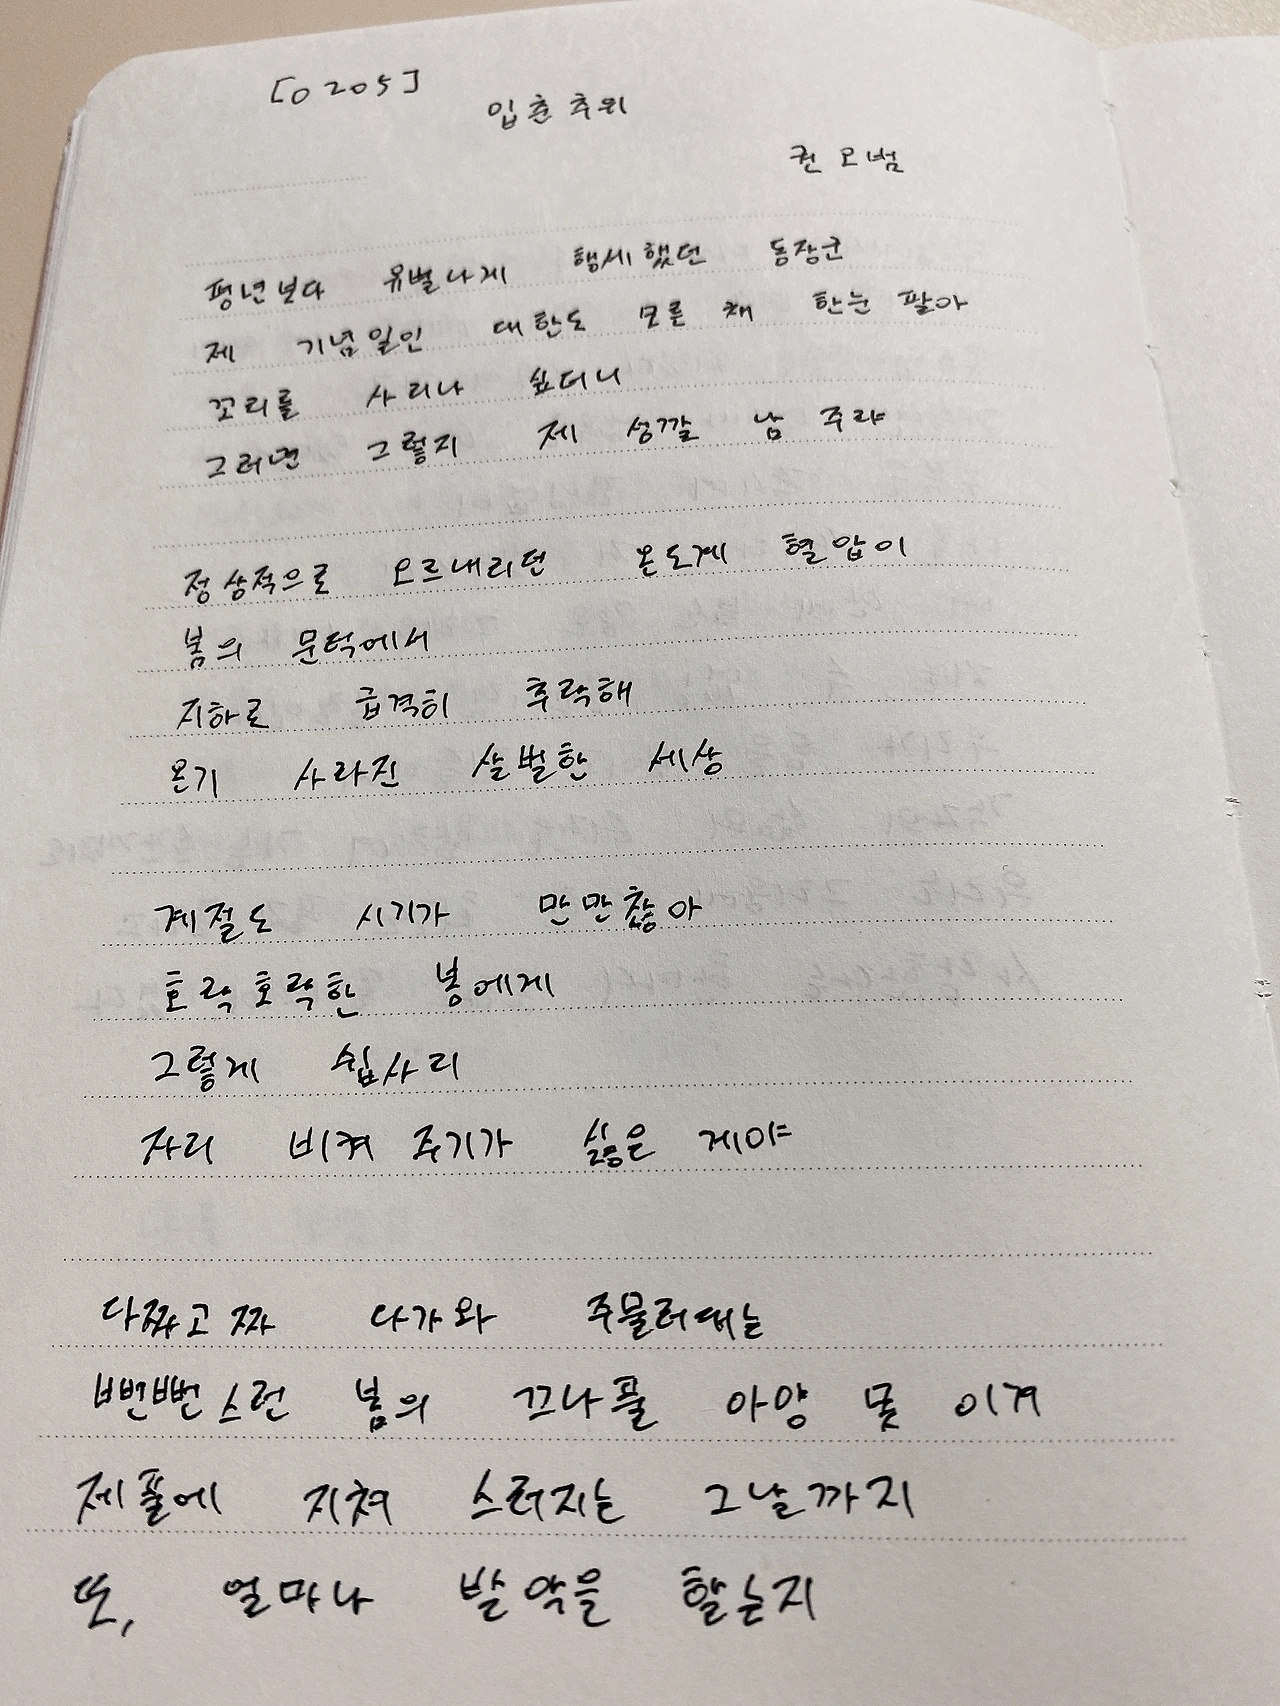 [0205]
입춘 추위
권오범
평년보다 유별나게 행세했던 동장군
제 기념일인 대한도 모른 채 한눈 팔아
꼬리를 사리나 싶더니
그러면 그렇지 제 성깔 남 주랴
정상적으로 오르내리던 온도계 혈압이
봄의 문턱에서
지하로 급격히 추락해
온기 사라진 살벌한 세상
계절도 시기가 만만찮아
호락호락한 봄에게
그렇게 쉽사리
자리 비켜 주기가 싫은 게야
다짜고짜 다가와 주물러대는
뻔뻔스런 봄의 끄나풀 아양 못 이겨
제풀에 지쳐 스러지는 그날까지
또, 얼마나 발악을 할는지